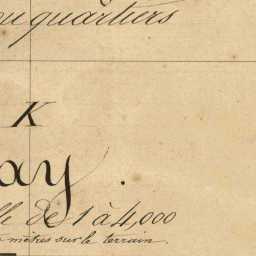 ou quartiers
K
ay .
lle de 1 à 4,000
mètres sur le terrain